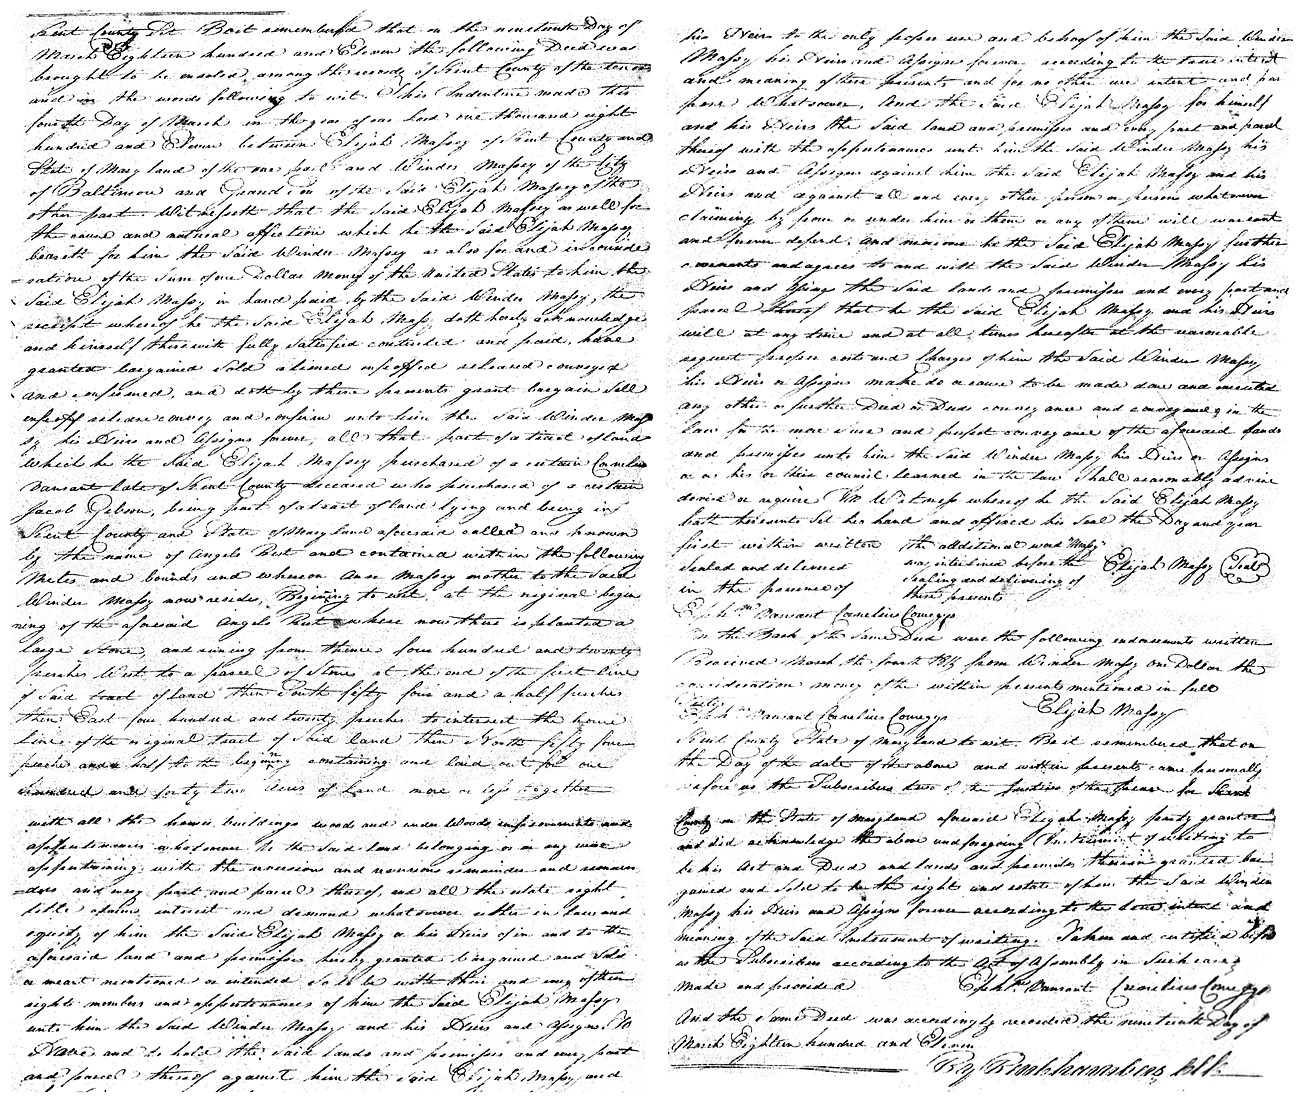 Kent County Sct Be it remembered that on the nineteenth Day of
March Eighteen hundred and Eleven the following Deed was
brought to be enroled among the records of Kent County of the tenor
and in the words following to wit. This Indenture made this
fourth Day of March in the year of our Lord one thousand eight
hundred and Eleven between Elijah Massy of Kent County and
State of Maryland of the one part and Winder Massey of the City
of Baltimore and Grandson of the said Elijah Massy of the
other part. Witnesseth that the said Elijah Massey as well for
the naturel and natural affection which he the said Elijah Massey
beareth for him the said Winder Massey as also for and in conside
ration of the Sum of one Dollar Money of the United States to him the
said Elijah Massy in hand paid by the said Winder Massy, the
receipt whereof he the said Elijah Massy doth hereby acknowledge
and himself therewith fully satisfied contented and paid, have
granted bargained sold aliened enfeoffed released conveyed
and confirmed, and doth by these presents grant bargain sell
enfeoff release convey and confirm unto him the said Winder Mas
sy his Heirs and Assigns forever, all that part of a tract of land
which he the said Elijah Massey purchased of a certain Cornelius
Vansant late of Kent County deceased who purchased of a certain
Jacob Gibson, being part of a tract of land lying and being in
Kent County and State of Maryland aforesaid called and known
by the name of Angels Rest and contained within the following
Metes and bounds and whereon Ann Massey mother to the said
Winder Massey now resides, Begining to wit, at the original begin
ning of the aforesaid Angels Rest where now there is planted a
large stone, and runing from thence four hundred and twenty
perches West to a parcel of Stones at the end of the first line
of said tract of land then South fifty four and a half perches
then East four hundred and twenty perches to intersect the home
line of the original tract of said land then North fifty four
perche and a half to the begining containing and laid out for one
hundred and forty two Acres of Land more or less together
with all the houses buildings woods and under woods improvements and
appurtenances whatsoever to the said land belonging or in any wise
appertaining with the reversion and reversions remainder and remain
ders and every part and parcel thereof, and all the estate right
title claim interest and demand whatsoever either in law and
equity of him the said Elijah Massy or his Heirs of in and to the
aforesaid land and premises hereby granted bargained and sold
or meant mentioned or intended so to be with their and every of their
rights members and appurtenances of him the said Elijah Massy
unto him the said Winder Massy and his Heirs and Assigns. To
Have and to hold the said lands and premises and every part
and parcel thereof against him the said Elijah Massy and
his Heirs to the only proper use and behoof of him the said Winder
Massy his Heirs and Assigns forever according to the true intent
and meaning of these presents and for no other use intent and pur
pose Whatsoever, And the said Elijah Massy for himself
and his Heirs the said land and premises and every part and parcel
thereof with the appertenances unto him the said Winder Massy his
Heirs and Assigns against him the said Elijah Massy and his
Heirs and against all and every other person or persons whatsoever
claiming by from or under him or them or any of them will warrant
and forever defend, and moreover he the said Elijah Massy further
covenants and agrees to and with the said Winder Massy his
Heirs and Assigns the said lands and premises and every part and
parcel thereof that he the said Elijah Massy and his Heirs
will at any time and at all times hereafter at the reasonable
request proper costs and Charges of him the said Winder Massy
his Heirs or Assigns make do or cause to be made done and executed
any other or further Deed or Deeds conveyance and conveyances in the
law for the more sure and perfect conveyance of the aforesaid lands
and premises unto him the said Winder Massy his Heirs or Assigns
or as his or their council learned in the law shall reasonably advise
devise or require In Witness whereof he the said Elijah Massy
hath hereunto set his hand and affixed his seal the Day and year
first within written the additional word "Massy"
sealed and delivered was interlined before the Elijah Massy Seal
in the presence of sealing and delivering of
these presents
Ephm Vansant Cornelius Comegys
On the Back of the same Deed were the following endorsements written
Received March the fourth 1811 from Winder Massy one Dollar the
consideration money of the within presents mentioned in full
Elijah Massy
Ephm Vansant Cornelius Comegys
Kent County State of Maryland to wit. Be it remembered that on
the Day of the date of the above and within presents came personally
before us the Subscribers two of the Justices of the peace for Kent
County in the State of Maryland aforesaid Elijah Massy party grantor
and did acknowledge the above and foregoing Instrument of writing to
be his Act and Deed and lands and premises therein granted bar
gained and sold to be the right and estate of him the said Winder
Massy his Heirs and Assigns forever according to the true intent and
meaning of the said Instrument of writing. Taken and certified before
us the Subscribers according to the Act of Assembly in such cases
made and provided Ephm Vansant Cornelius Comegys
And the same Deed was accordingly recorded the nineteenth Day of
March Eighteen hundred and Eleven